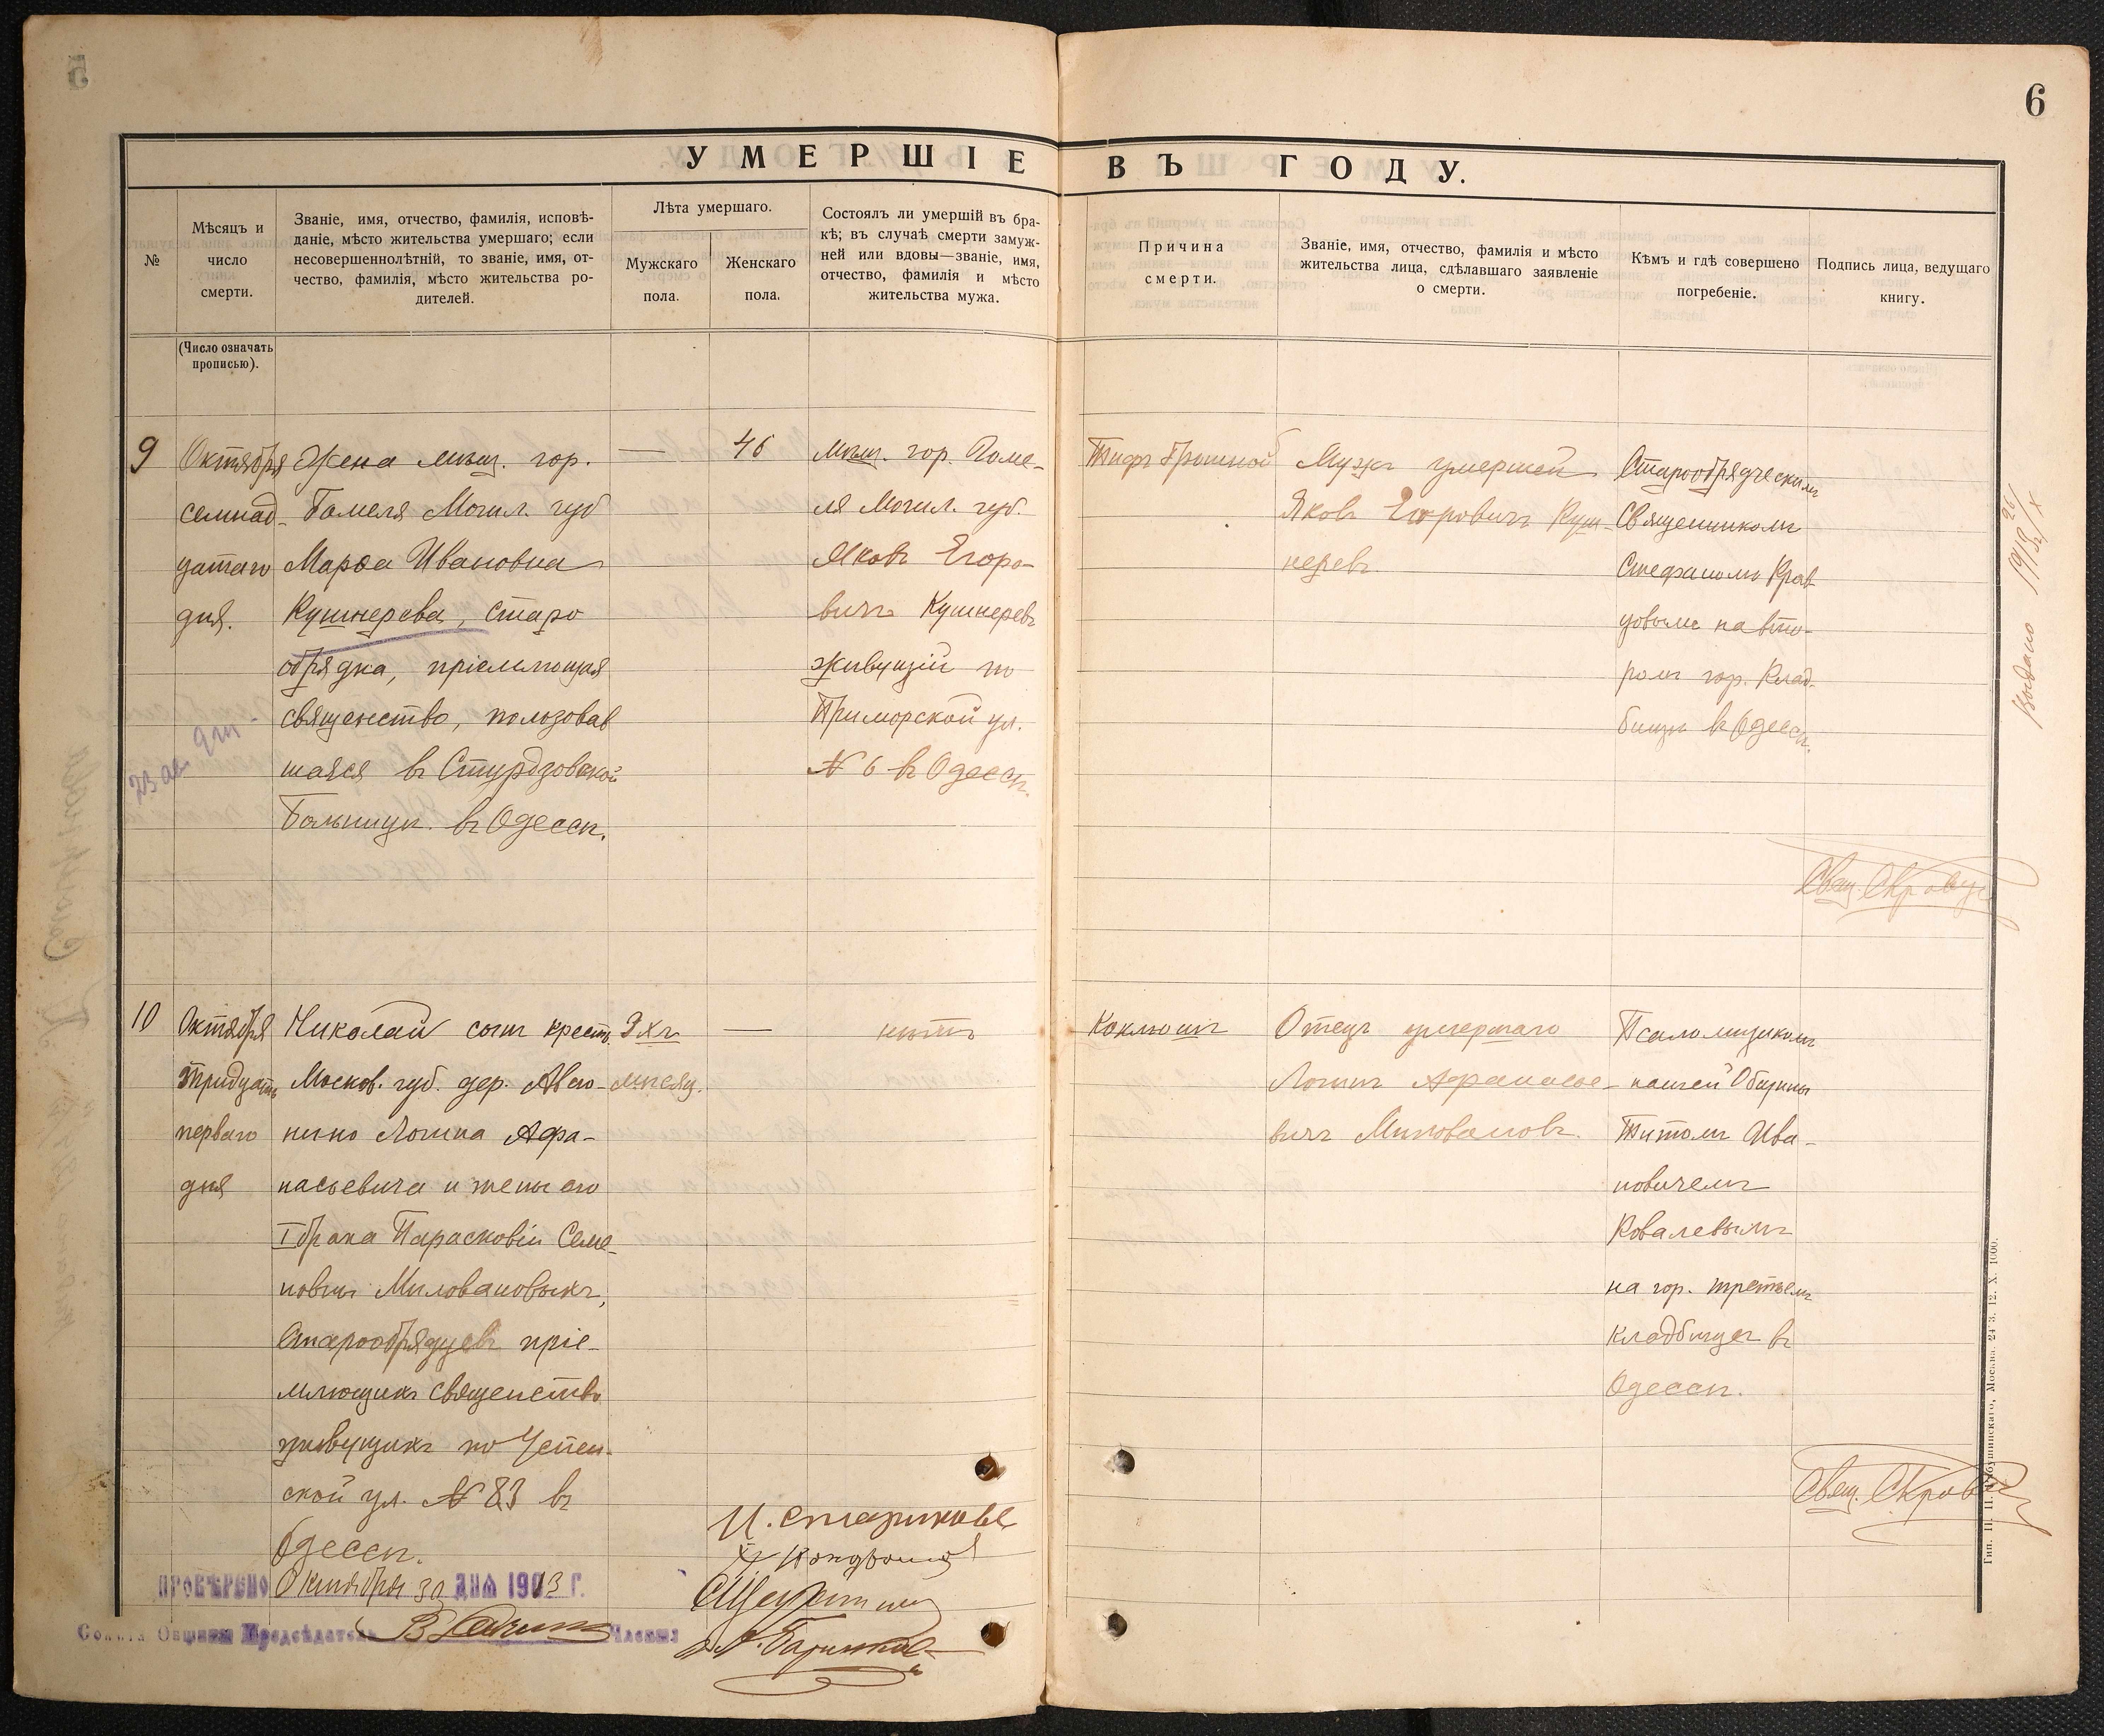 6
УМЕРШІЕ ВЪ ГОДУ.
№
Мѣсяцъ и
число
смерти.
Званіе, имя, отчество, фамилія, исповѣ-
даніе, мѣсто жительства умершаго; если
несовершеннолѣтній, то званіе, имя, от-
чество, фамилія, мѣсто жительства ро-
дителей.
Лѣта умершаго.
Мужскаго
пола.
Женскаго
пола.
Состоялъ ли умершій въ бра-
кѣ; въ случаѣ смерти замуж-
ней или вдовы—званіе, имя,
отчество, фамилія и мѣсто
жительства мужа.
Причина
смерти.
Званіе, имя, отчество, фамилія и мѣсто
жительства лица, сдѣлавшаго заявленіе
о смерти.
Кѣмъ и гдѣ совершено
погребеніе.
Подпись лица, ведущаго
книгу.
(Число означать
прописью).
9
Октября
семнад-
цатаго
дня.
Жена мѣщ. гор.
Гомеля Могил. губ
Марѳа Ивановна
Кушнерева, старо
обрядка, пріемлющая
священство, пользовав
шаяся въ Стурдзовской
Больницѣ. въ Одессѣ.
—
46
Мѣщ. гор. Гоме-
ля Могил. губ.
Яковъ Егоро-
вичъ Кушнеревъ
живущій по
Приморской ул.
№ 6 въ Одессѣ.
Тифъ брюшной
Мужъ умершей
Яковъ Егоровичъ Куш-
неревъ
Старообрядческимъ
Священникомъ
Стефаномъ Крав-
цовымъ на вто-
ромъ гор. Клад-
бищѣ въ Одессѣ.
Свящ. СКравцо
Выдано 1918 26/X
10
Октября
тридцать
перваго
дня
Николай сынъ крест.
Москов. губ. дер. Авсю-
нино Логина Афа-
насьевича и жены его
I брака Парасковіи Семе-
новны Миловановыхъ,
Старообрядцевъ пріе-
млющихъ священство
живущихъ по Успен-
ской ул. № 83 въ
Одессѣ.
3хъ
мѣсяц.
—
нѣтъ
Коклюшъ
Отецъ умершаго
Логинъ Афанасье-
вичъ Миловановъ.
Псаломщикомъ
нашей Общины
Титомъ Ива-
новичемъ
Ковалевымъ
на гор. третьемъ
кладбищѣ въ
Одессѣ.
Свящ. СКравц
ПРОВѢРЕНО Октября 30 ДНЯ 1913 Г.
Совѣта Общины Предсѣдатель
Члены
И. Стариковъ
Тип. П. П. Рябушинскаго, Москва. 24 3. 12. X. 1000.